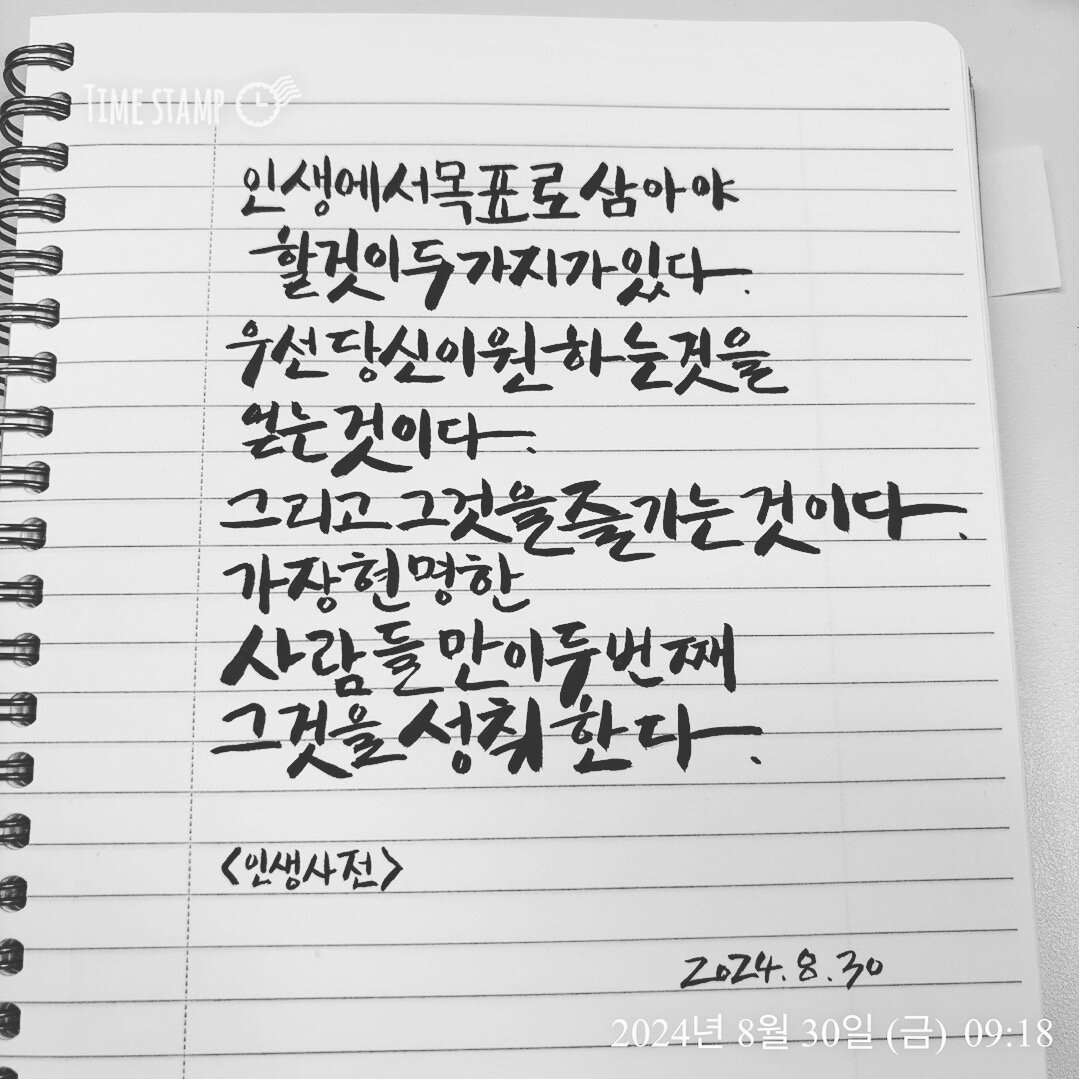 TIME STAMP
인생에서 목표로 삼아야
할 것이 두 가지가 있다.
우선 당신이 원하는 것을
얻는 것이다.
그리고 그것을 즐기는 것이다.
가장 현명한
사람들만이 두번째
그것을 성취한다.
<인생사전>
2024.8.30
2024년 8월 30일 (금) 09:18